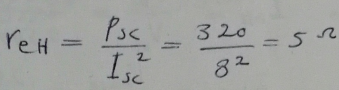 reH = Psc / Isc² = 320 / 8² = 5 Ω